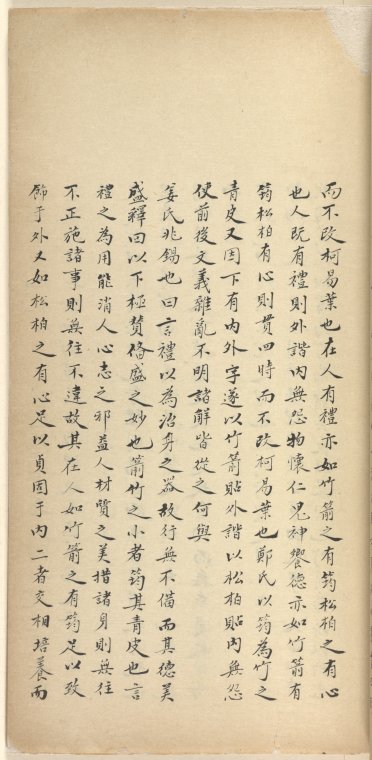 而不改柯易葉也在人有禮亦如竹箭之有筠松柏之有心
也人既有禮則外諧内無怨物懷仁鬼神饗徳亦如竹箭有
筠松柏有心則貫四時而不改柯易葉也鄭氏以筠為竹之
青皮又因下有内外字遂以竹箭貼外諧以松柏貼内無怨
使前後文義雜亂不明諸解皆從之何與
姜氏兆錫也曰言禮以為治身之器故行無不備而其德美
盛釋曰以下極贊備盛之妙也箭竹之小者筠其青皮也言
禮之為用能消人心志之邪益人材質之美措諸身則無往
不正施諸事則無往不達故其在人如竹箭之有筠足以致
飾于外又如松柏之有心足以貞固于内二者交相培養而